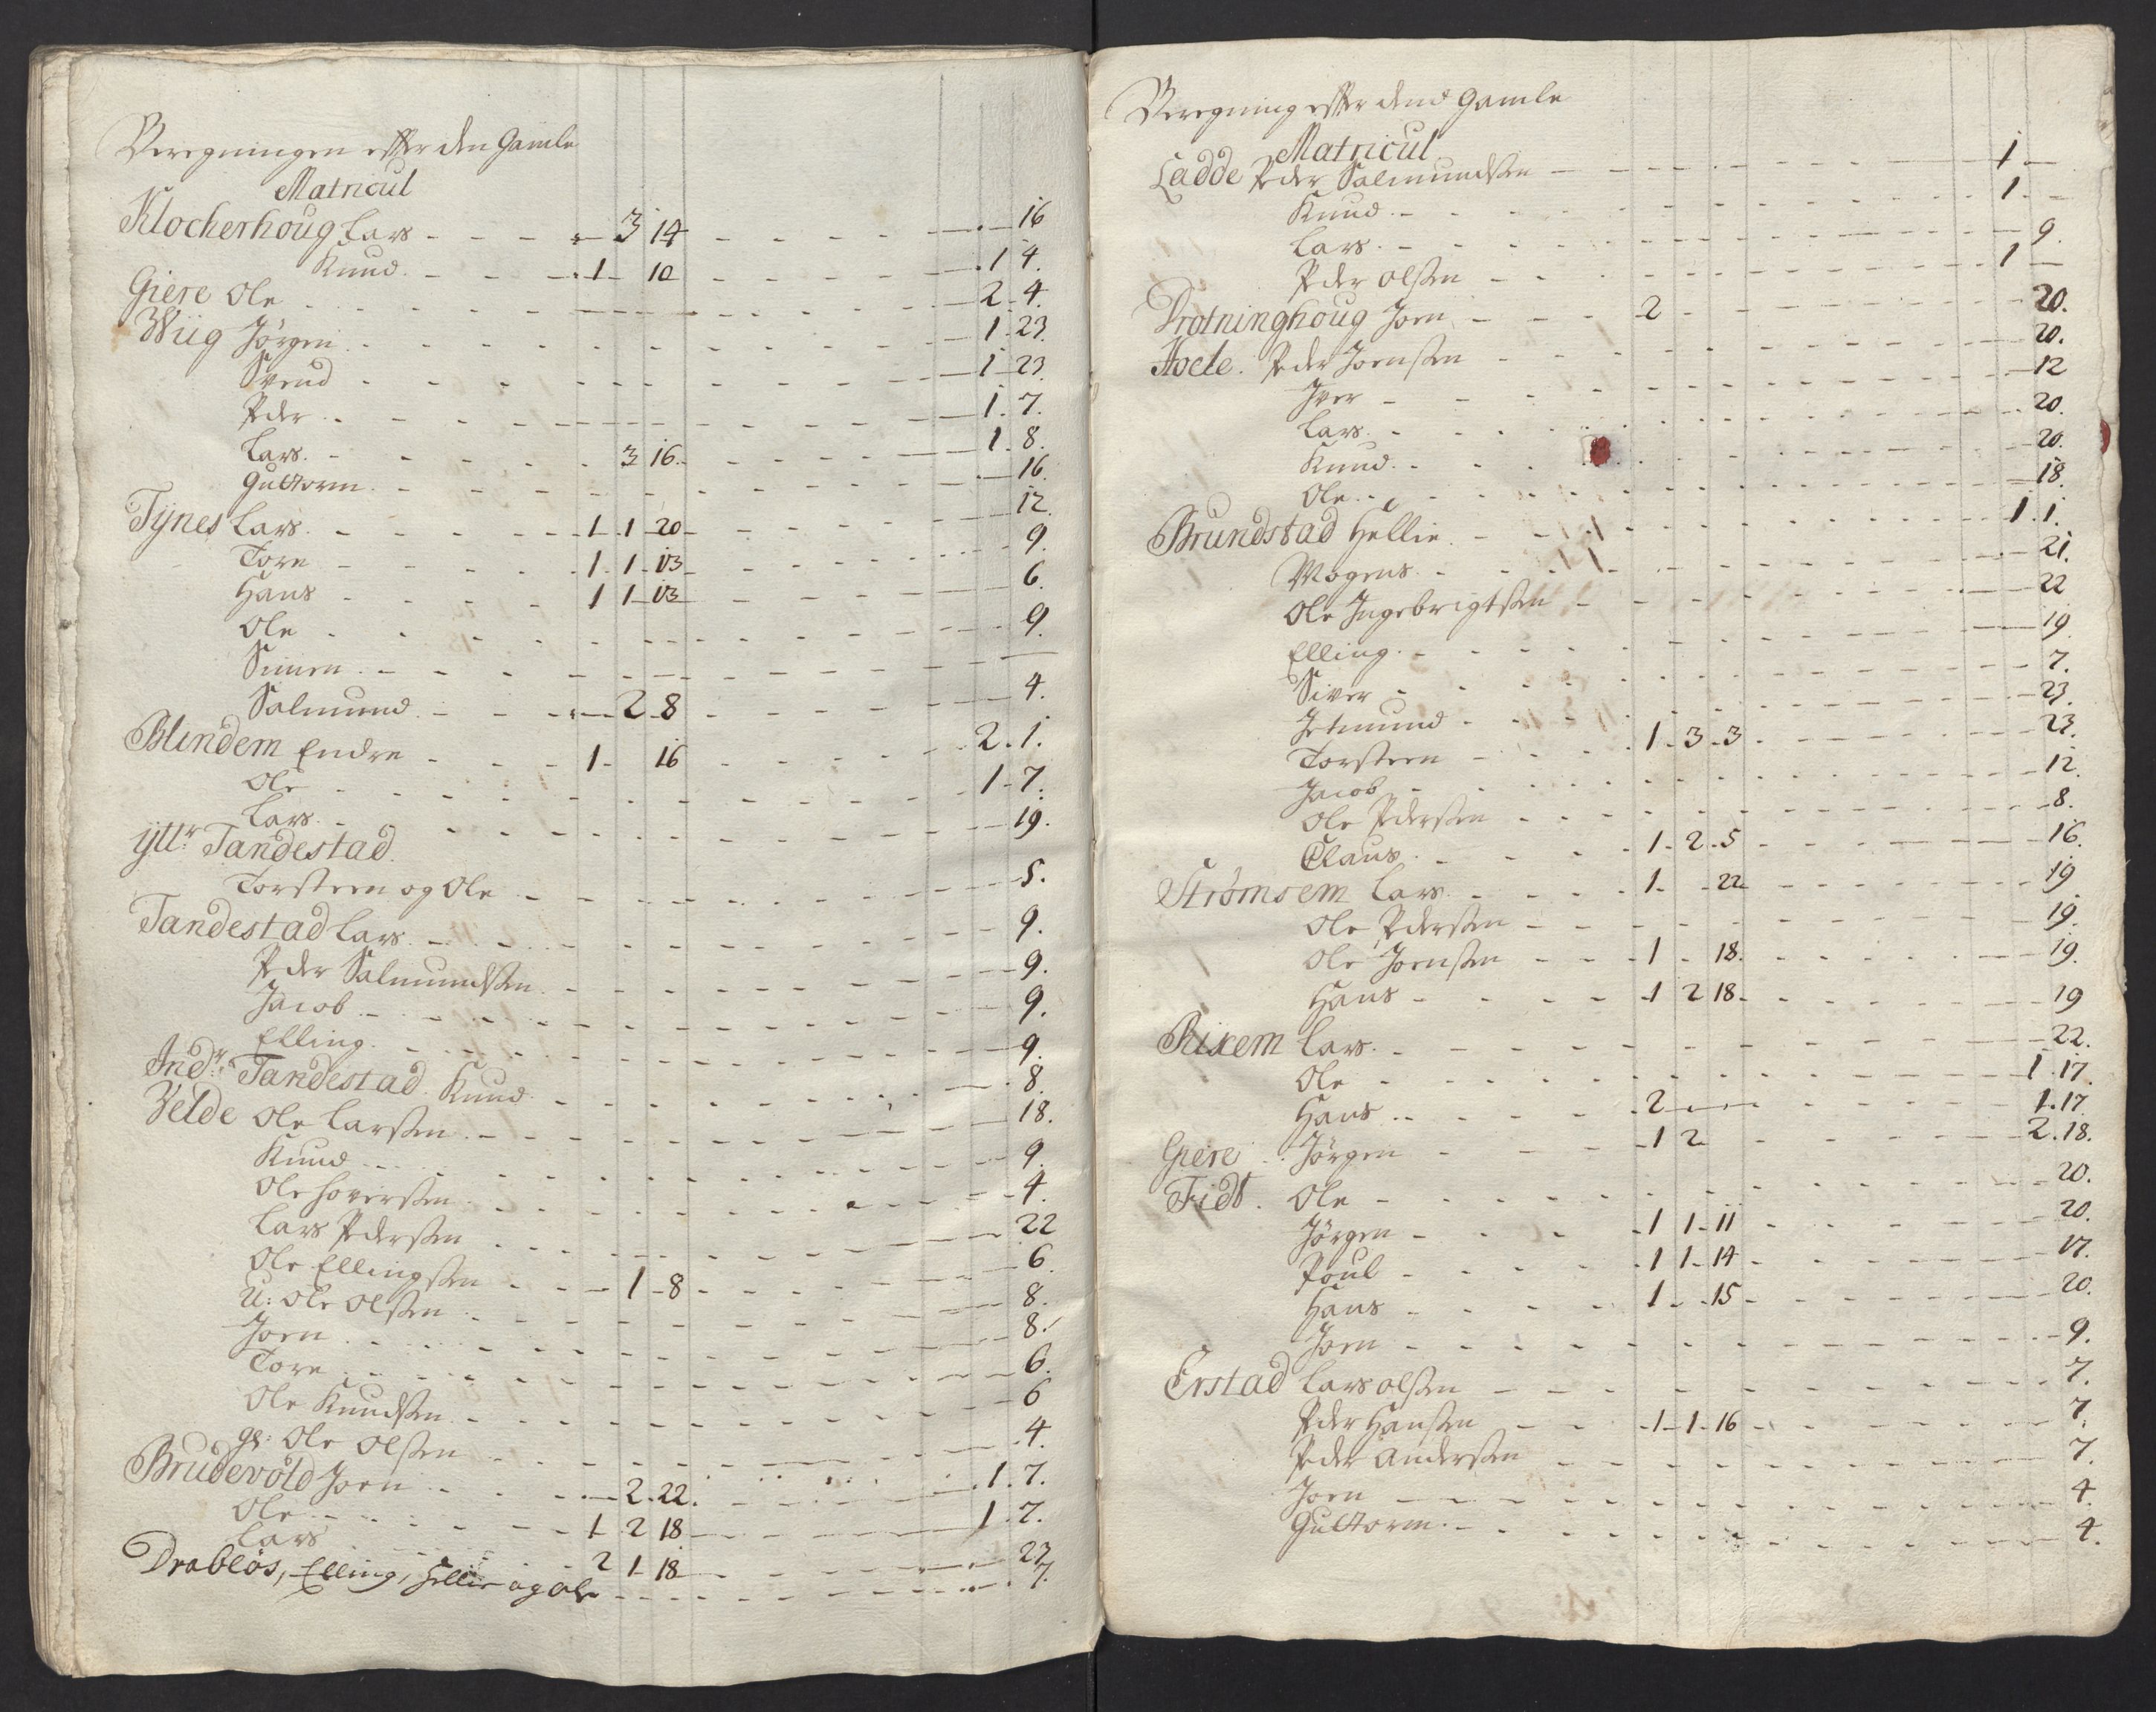 Beregningen effter den Gamle
Matricul
Klocherhoug Lars - - - - 3 14 - - - - - 16
Knud - - - 1 - 10 - - - - 1 4.
Giere Ole - - - - - - - 2 - 4.
Wiig Jørgen - - - - - - - 1 - 23.
Svend - - - - - - - 1 - 23.
Peder - - - - - - - 1 . 7.
Lars - - - - 3 16 - - - - 1 . 8.
Guttorm - - - - - - - 16.
Tÿnes Lars - - - 1 - 1 - 20 - - - - 12.
Tore - - - 1 - 1 - 13 - - - - 9.
Hans - - - 1 1 - 13 - - - - 6.
Ole - - - - - - - 9.
Simen - - - - - - -
Salmund - - - 2 - 8 - - - - 4.
Blindem Endre - - - 1 - 16 - - - - 2 . 1.
Ole - - - - - - - 1 - 7.
Lars - - - - - - - 19.
ÿttr Tandestad.
Torsteen og Ole - - - - - - 5.
Tandestad Lars - - - - - - 9.
Peder Salmundsen - - - - - - 9.
Jacob - - - - - - 9.
Elling - - - - - - 9.
Indr: Tandestad Knud - - - - - - 8.
Velde Ole Larsen - - - - - - 18.
Knud - - - - - - 9.
Ole Sversen - - - - - - 4.
Lars Pedersen - - - - - - 22
Ole Ellingsen - - - 1 - 8 - - - - 6.
U: Ole Olsen - - - - - - 8.
Joen - - - - - - 8.
Tore - - - - - - 6.
Ole Knudsen - - - - - - 6
gl: Ole Olsen - - - - - - 4.
Brudevold Joen - - - 2 . 22. - - - - 1 . 7.
Ole - - - 1 2 18 - - - - 1 . 7.
Lars - - - 2 1 - 18 - - - - 23
Drabløs, Elling, Hellie og Ole - - - - - - 7.
Beregning effter dend Gamle
Matricul
Ladde Peder Salmundsen - - - - - - 1 -
Knud - - - - - - 1 - -
Lars - - - - - - 9.
Peder Olsen - - - - - - 1 -
Drotninghoug Joen - - - 2 - - - - 20.
Hoele. Peder Joensen - - - - - - 20.
Iver - - - - - - 12
Lars - - - - - - 20.
Knud - - - - - - 20.
Ole - - - - - - 18.
Brundstad Hellie - - - - - - 1 . 1.
Mogens - - - - - - 21.
Ole Ingebrigtsen - - - - - - 22
Elling - - - - - - 19
Siver - - - - - - 7.
Jetmund - - - - - - 23.
Torsteen - - - 1 - 3 - 3 - - - - 23.
Jacob - - - - - - 12.
Ole Pedersen - - - - - - 8.
Claus - - - 1 - 2 . 5 - - - - 16.
Strømsem Lars - - - 1 - 22 - - - - 19
Ole Pedersen - - - - - - 19.
Ole Joensen - - - 1 - 18. - - - - 19.
Hans - - - 1 2 18 - - - - 19
Rixem Lars - - - - - - 22.
Ole - - - - - - 1 . 17.
Hans - - - 2 - - - - 1 . 17
Giere Jørgen - - - 1 2 - - - - 2 . 18.
Fidt. Ole - - - - - - 20.
Jørgen - - - 1 1 - 11 - - - - 20.
Poul - - - 1 1 - 14 - - - - 17.
Hans - - - 1 - 15 - - - - 20.
Joen - - - - - - 9.
Erstad Lars Olsen - - - - - - 7.
Peder Hansen - - - 1 - 1 - 16 - - - - 7.
Peder Andersen - - - - - - 7.
Joen - - - - - - 4.
Guttorm - - - - - - 4.